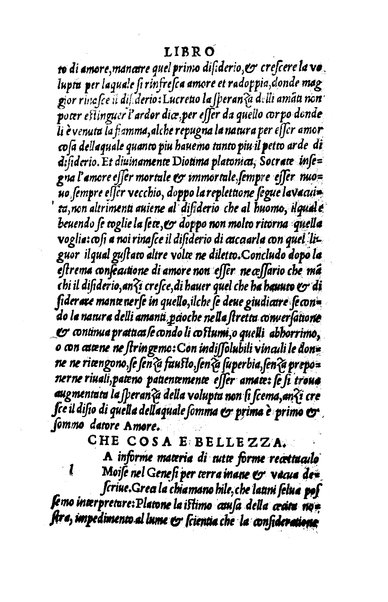 LIBRO
to di amore, mancare quel primo disiderio, & crescere la vo
lupta per laquale si rinfresca amore et radoppia, donde mag
gior rinasce il disiderio: Lucretio la speranza delli amati non
poter estinguer l'ardor dice, per esser da quello corpo donde
li è venuta la fiamma, alche repugna la natura per esser amor
cosa dellaquale quanto piu hauemo tanto piu il petto arde di
disiderio. Et diuinamente Diotima platonica, Socrate inse‑
gna l'amore esser mortale & immortale, sempre esser nuo‑
uo, sempre esser vecchio, doppo la replettione segue la vacui‑
ta, non altrimenti auiene al disiderio che al huomo, ilquale
beuendo se toglie la sete, & doppo non molto ritorna quella
voglia: cosi a noi rinasce il disiderio di attaccarla con quel li‑
quor ilqual gustato altre volte ne diletto. Concludo dopo la
estrema consecutione di amore non esser necessario che mā
chi il disiderio, anzi cresce, di hauer quel che ha hauuto & di
siderare mantenerse in quello, ilche se deue giudicare secon‑
do la natura delli amanti, ꝑcioche nella stretta conuersatione
& continua prattica secondo li costumi, o quelli abhorrimo,
o con catene ne stringemo: Con indissolubili vinculi le don‑
ne ne ritengono, se senza fausto, senza superbia, senza prepo‑
nerne riuali, pateno patientemente esser amate: se si troua
augmentata la speranza della volupta non si scema, anzi cre
sce il disio di quella dellaquale somma & prima è primo &
sommo datore Amore.
CHE COSA E BELLEZZA.
l A informe materia di tutte forme recettaculo
Moise nel Genesi per terra inane & vacua de‑
scriue. Greca la chiamano hile, che latini selua pos
semo interpretare: Platone la istimo causa della cecita no‑
stra, impedimento al lume & scientia che la consideratione